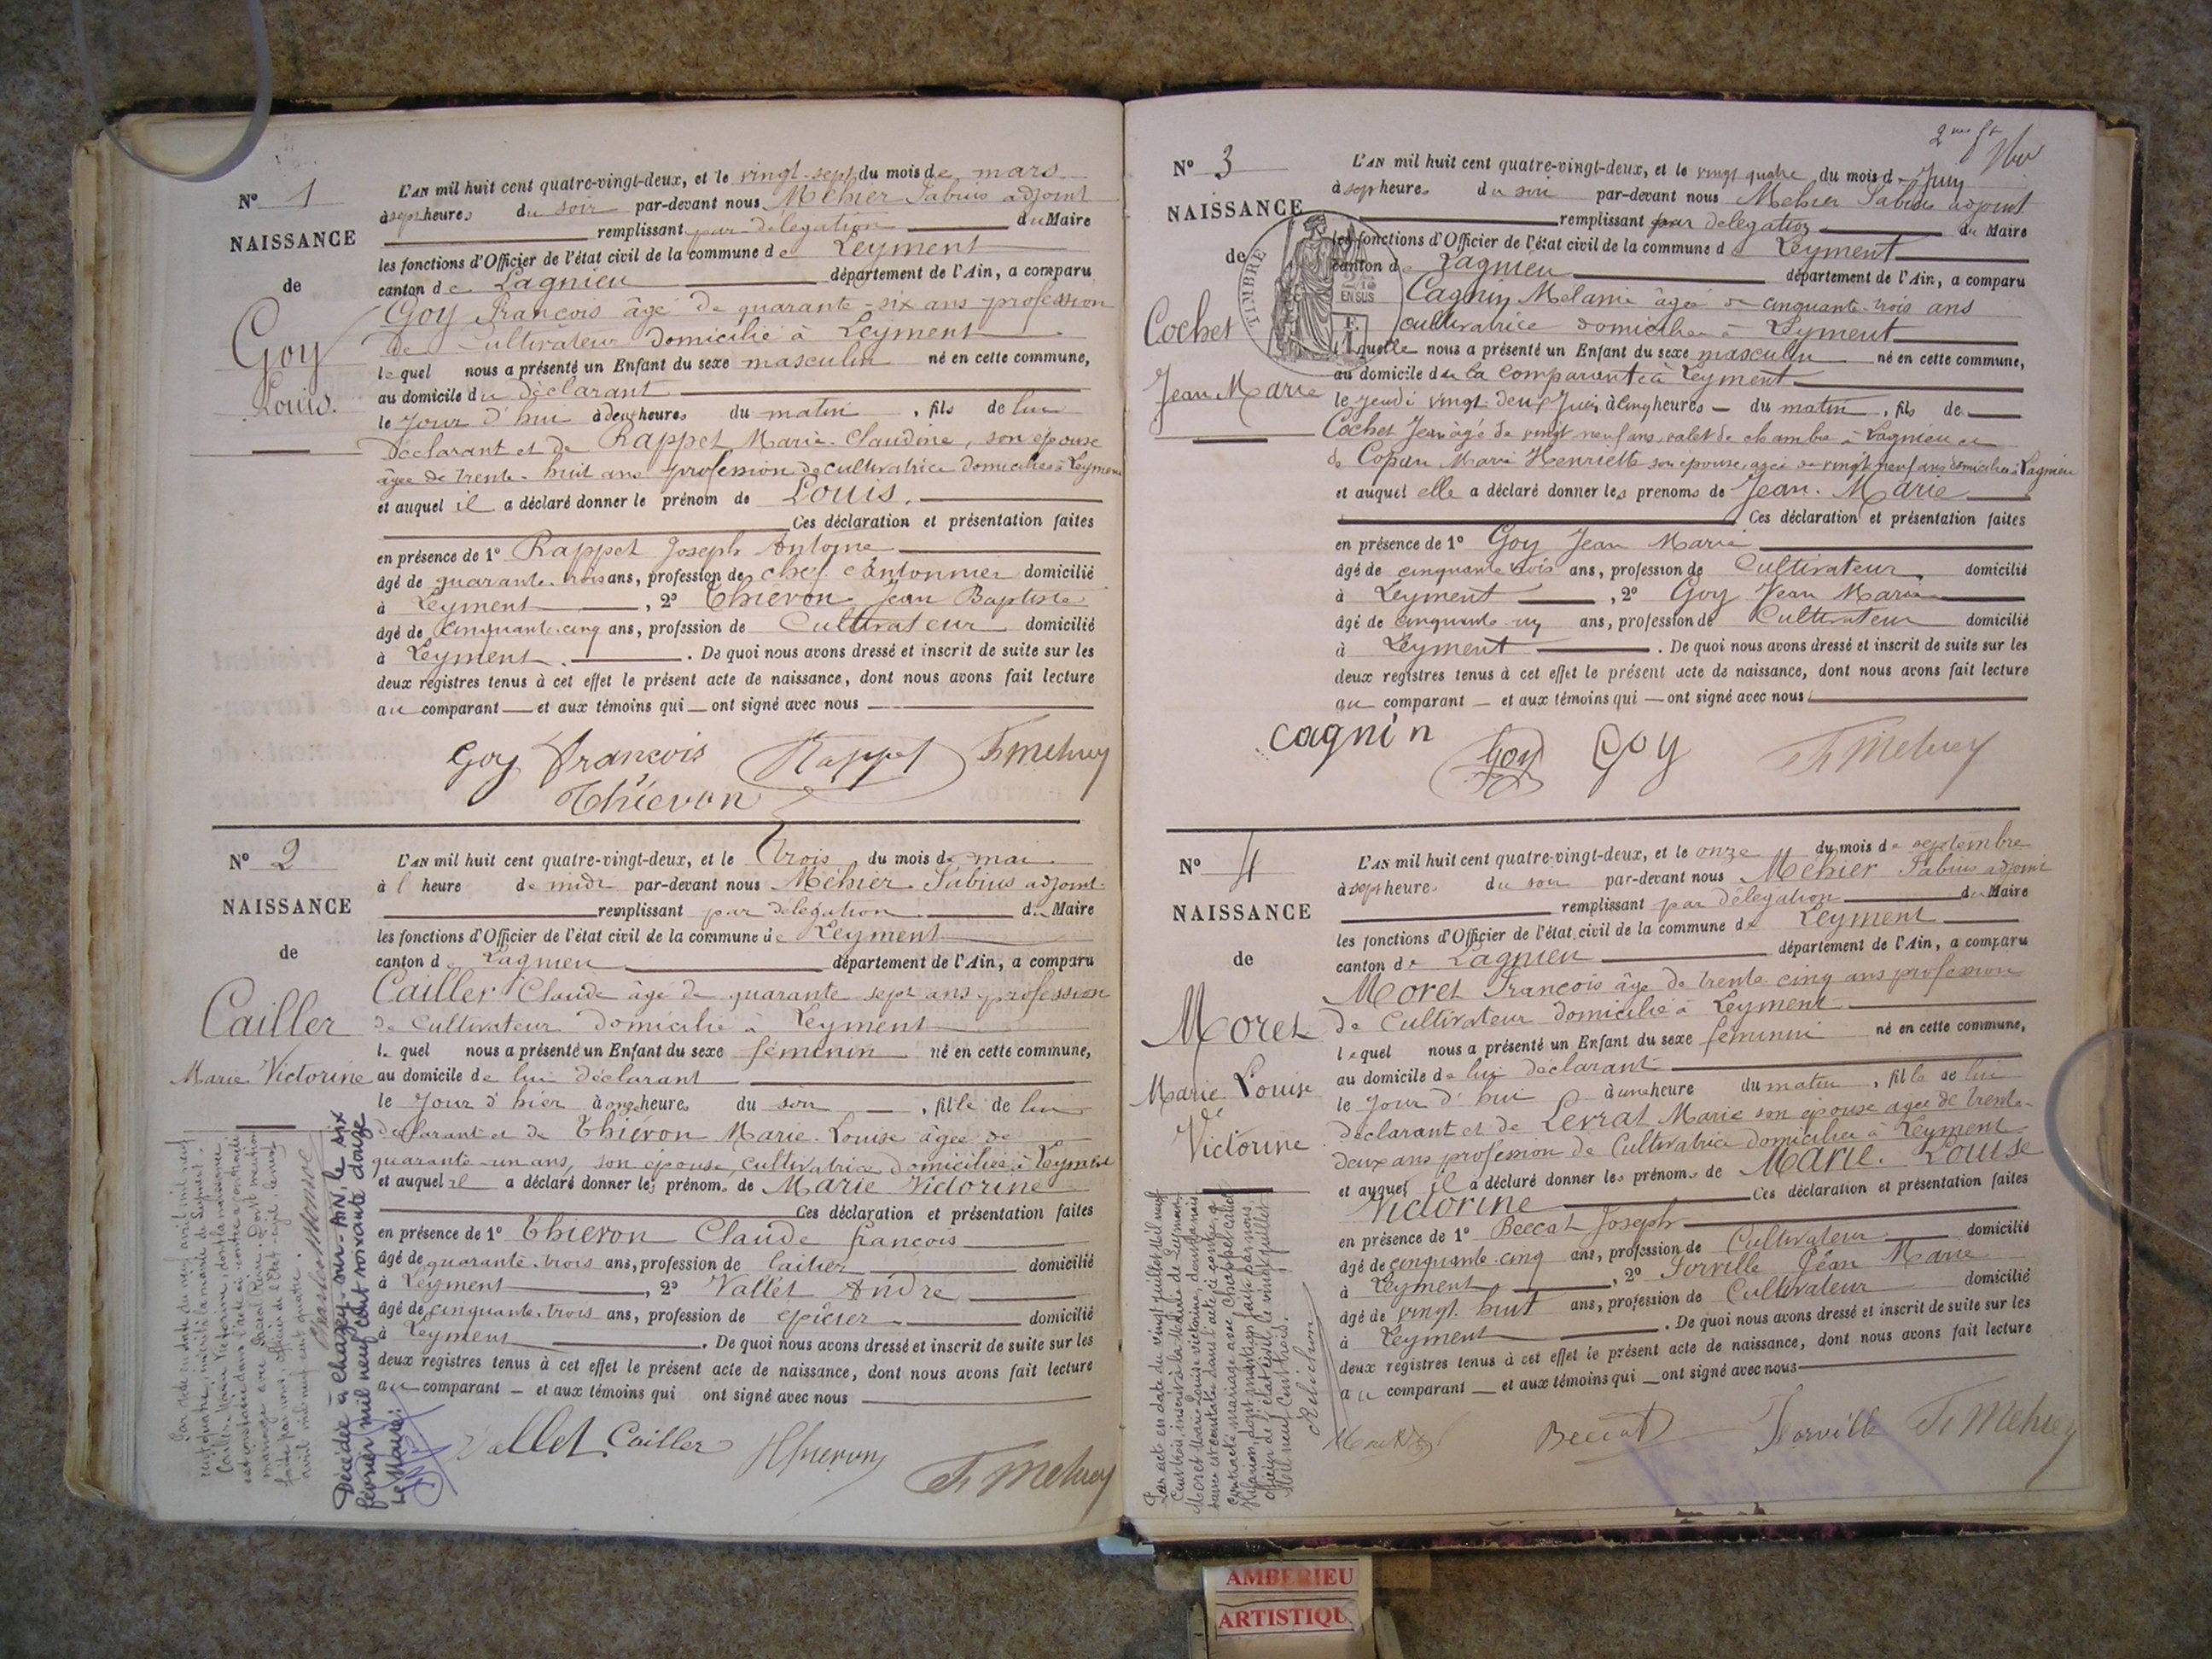 N° 1
NAISSANCE
de
Goy
Louis.
L'AN mil huit cent quatre-vingt-deux, et le vingt-sept du mois de mars
à sept heures du soir par-devant nous Méhier Fabius adjoint
remplissant par délégation du Maire
les fonctions d'Officier de l'état civil de la commune de Leyment
canton de Lagnieu département de l'Ain, a comparu
Goy François âgé de quarante-six ans profession
de Cultivateur domicilié à Leyment
lequel nous a présenté un Enfant du sexe masculin né en cette commune,
au domicile du déclarant
le jour d'hui à deux heures du matin, fils de lui
déclarant et de Rappet Marie-Claudine, son épouse
âgée de trente-huit ans profession de cultivatrice domiciliée à Leyment
et auquel il a déclaré donner le prénom de Louis.
Ces déclaration et présentation faites
en présence de 1° Rappet Joseph Antoine
âgé de quarante-trois ans, profession de chef cantonnier domicilié
à Leyment, 2° Thiévon Jean Baptiste
âgé de cinquante-cinq ans, profession de Cultivateur domicilié
à Leyment. De quoi nous avons dressé et inscrit de suite sur les
deux registres tenus à cet effet le présent acte de naissance, dont nous avons fait lecture
au comparant et aux témoins qui ont signé avec nous
Goy François Rappet F. Mehier
Thiévon
N° 2
NAISSANCE
de
Cailler
Marie Victorine
L'AN mil huit cent quatre-vingt-deux, et le trois du mois de mai
à l heure de midi par-devant nous Méhier Fabius adjoint
remplissant par délégation du Maire
les fonctions d'Officier de l'état civil de la commune de Leyment
canton de Lagnieu département de l'Ain, a comparu
Cailler Claude âgé de quarante sept ans profession
de Cultivateur domicilié à Leyment
lequel nous a présenté un Enfant du sexe féminin né en cette commune,
au domicile de lui déclarant
le jour d'hier à onze heures du soir, fille de lui
déclarant et de Thiévon Marie-Louise âgée de
quarante-un ans, son épouse, cultivatrice domiciliée à Leyment
et auquel il a déclaré donner les prénoms de Marie Victorine
Ces déclaration et présentation faites
en présence de 1° Thiévon Claude François
âgé de quarante-trois ans, profession de laitier domicilié
à Leyment, 2° Vallet André
âgé de cinquante-trois ans, profession de épicier domicilié
à Leyment. De quoi nous avons dressé et inscrit de suite sur les
deux registres tenus à cet effet le présent acte de naissance, dont nous avons fait lecture
au comparant et aux témoins qui ont signé avec nous
Vallet Cailler Thievon
F. Mehier
Par acte en date du neuf avril mil neuf
cent quatre, inscrit à la mairie de
Cailler Marie Victorine, dont la naissance
est constatée dans l'acte ci-contre a contracté
mariage avec Pierre. Dont mention
faite par nous, officier de l'Etat-civil, le neuf
avril mil neuf cent quatre.
Décédée à Chazey-sur-Ain, le six
février mil neuf cent soixante douze
Le Maire:
2me ft
N° 3
NAISSANCE
de
Cochet
Jean Marie
TIMBRE
2/10
EN SUS
L'AN mil huit cent quatre-vingt-deux, et le vingt quatre du mois de Juin
à sept heures du soir par-devant nous Mehier Fabius adjoint
remplissant par délégation du Maire
les fonctions d'Officier de l'état civil de la commune de Leyment
canton de Lagnieu département de l'Ain, a comparu
Cagnin Melanie âgée de cinquante-trois ans
cultivatrice domiciliée à Leyment
laquelle nous a présenté un Enfant du sexe masculin né en cette commune,
au domicile de la comparante à Leyment
le jeudi vingt-deux Juin à cinq heures du matin, fils de
Cochet Jean âgé de vingt neuf ans, valet de chambre à Lagnieu et
de Copin Marie Henriette son épouse, agée de vingt neuf ans domiciliée à Lagnieu
et auquel elle a déclaré donner les prenoms de Jean-Marie
Ces déclaration et présentation faites
en présence de 1° Goy Jean Marie
âgé de cinquante trois ans, profession de Cultivateur domicilié
à Leyment, 2° Goy Jean Marie
âgé de cinquante-un ans, profession de Cultivateur domicilié
à Leyment. De quoi nous avons dressé et inscrit de suite sur les
deux registres tenus à cet effet le présent acte de naissance, dont nous avons fait lecture
au comparant et aux témoins qui ont signé avec nous
cagnin Goy Goy F. Mehier
N° 4
NAISSANCE
de
Moret
Marie Louise
Victorine
L'AN mil huit cent quatre-vingt-deux, et le onze du mois de septembre
à sept heures du soir par-devant nous Méhier Fabius adjoint
remplissant par délégation du Maire
les fonctions d'Officier de l'état civil de la commune de Leyment
canton de Lagnieu département de l'Ain, a comparu
Moret François âgé de trente-cinq ans profession
de Cultivateur domicilié à Leyment
lequel nous a présenté un Enfant du sexe féminin né en cette commune,
au domicile de lui déclarant
le jour d'hui à une heure du matin, fille de lui
déclarant et de Levrat Marie son épouse agée de trente-
deux ans profession de Cultivatrice domiciliée à Leyment
et auquel il a déclaré donner les prénoms de Marie-Louise
Victorine Ces déclaration et présentation faites
en présence de 1° Beccat Joseph domicilié
âgé de cinquante-cinq ans, profession de Cultivateur
à Leyment, 2° Jorville Jean Marie
âgé de vingt-huit ans, profession de Cultivateur domicilié
à Leyment. De quoi nous avons dressé et inscrit de suite sur les
deux registres tenus à cet effet le présent acte de naissance, dont nous avons fait lecture
au comparant et aux témoins qui ont signé avec nous
Moret Beccat Jorville F. Mehier
Par acte en date du vingt juillet Mil neuf
Cent trois, inscrit à la Mairie de Leyment,
Moret Marie Louise Victorine, dont la nais-
sance est constatée dans l'acte ci-contre, a
contracté mariage avec Chappet Claude
Hilarion, dont mention faite par nous
officier de l'état civil, le vingt juillet
Mil neuf Cent trois.
AMBERIEU
ARTISTIQU